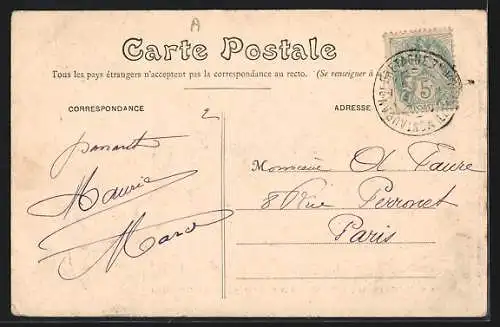 A
Carte Postale
Tous les pays étrangers n'acceptent pas la correspondance au recto. (Se renseigner à
CORRESPONDANCE
ADRESSE
2
Maurice
Monsieur A Faure
8 Rue Perronet
Paris
5